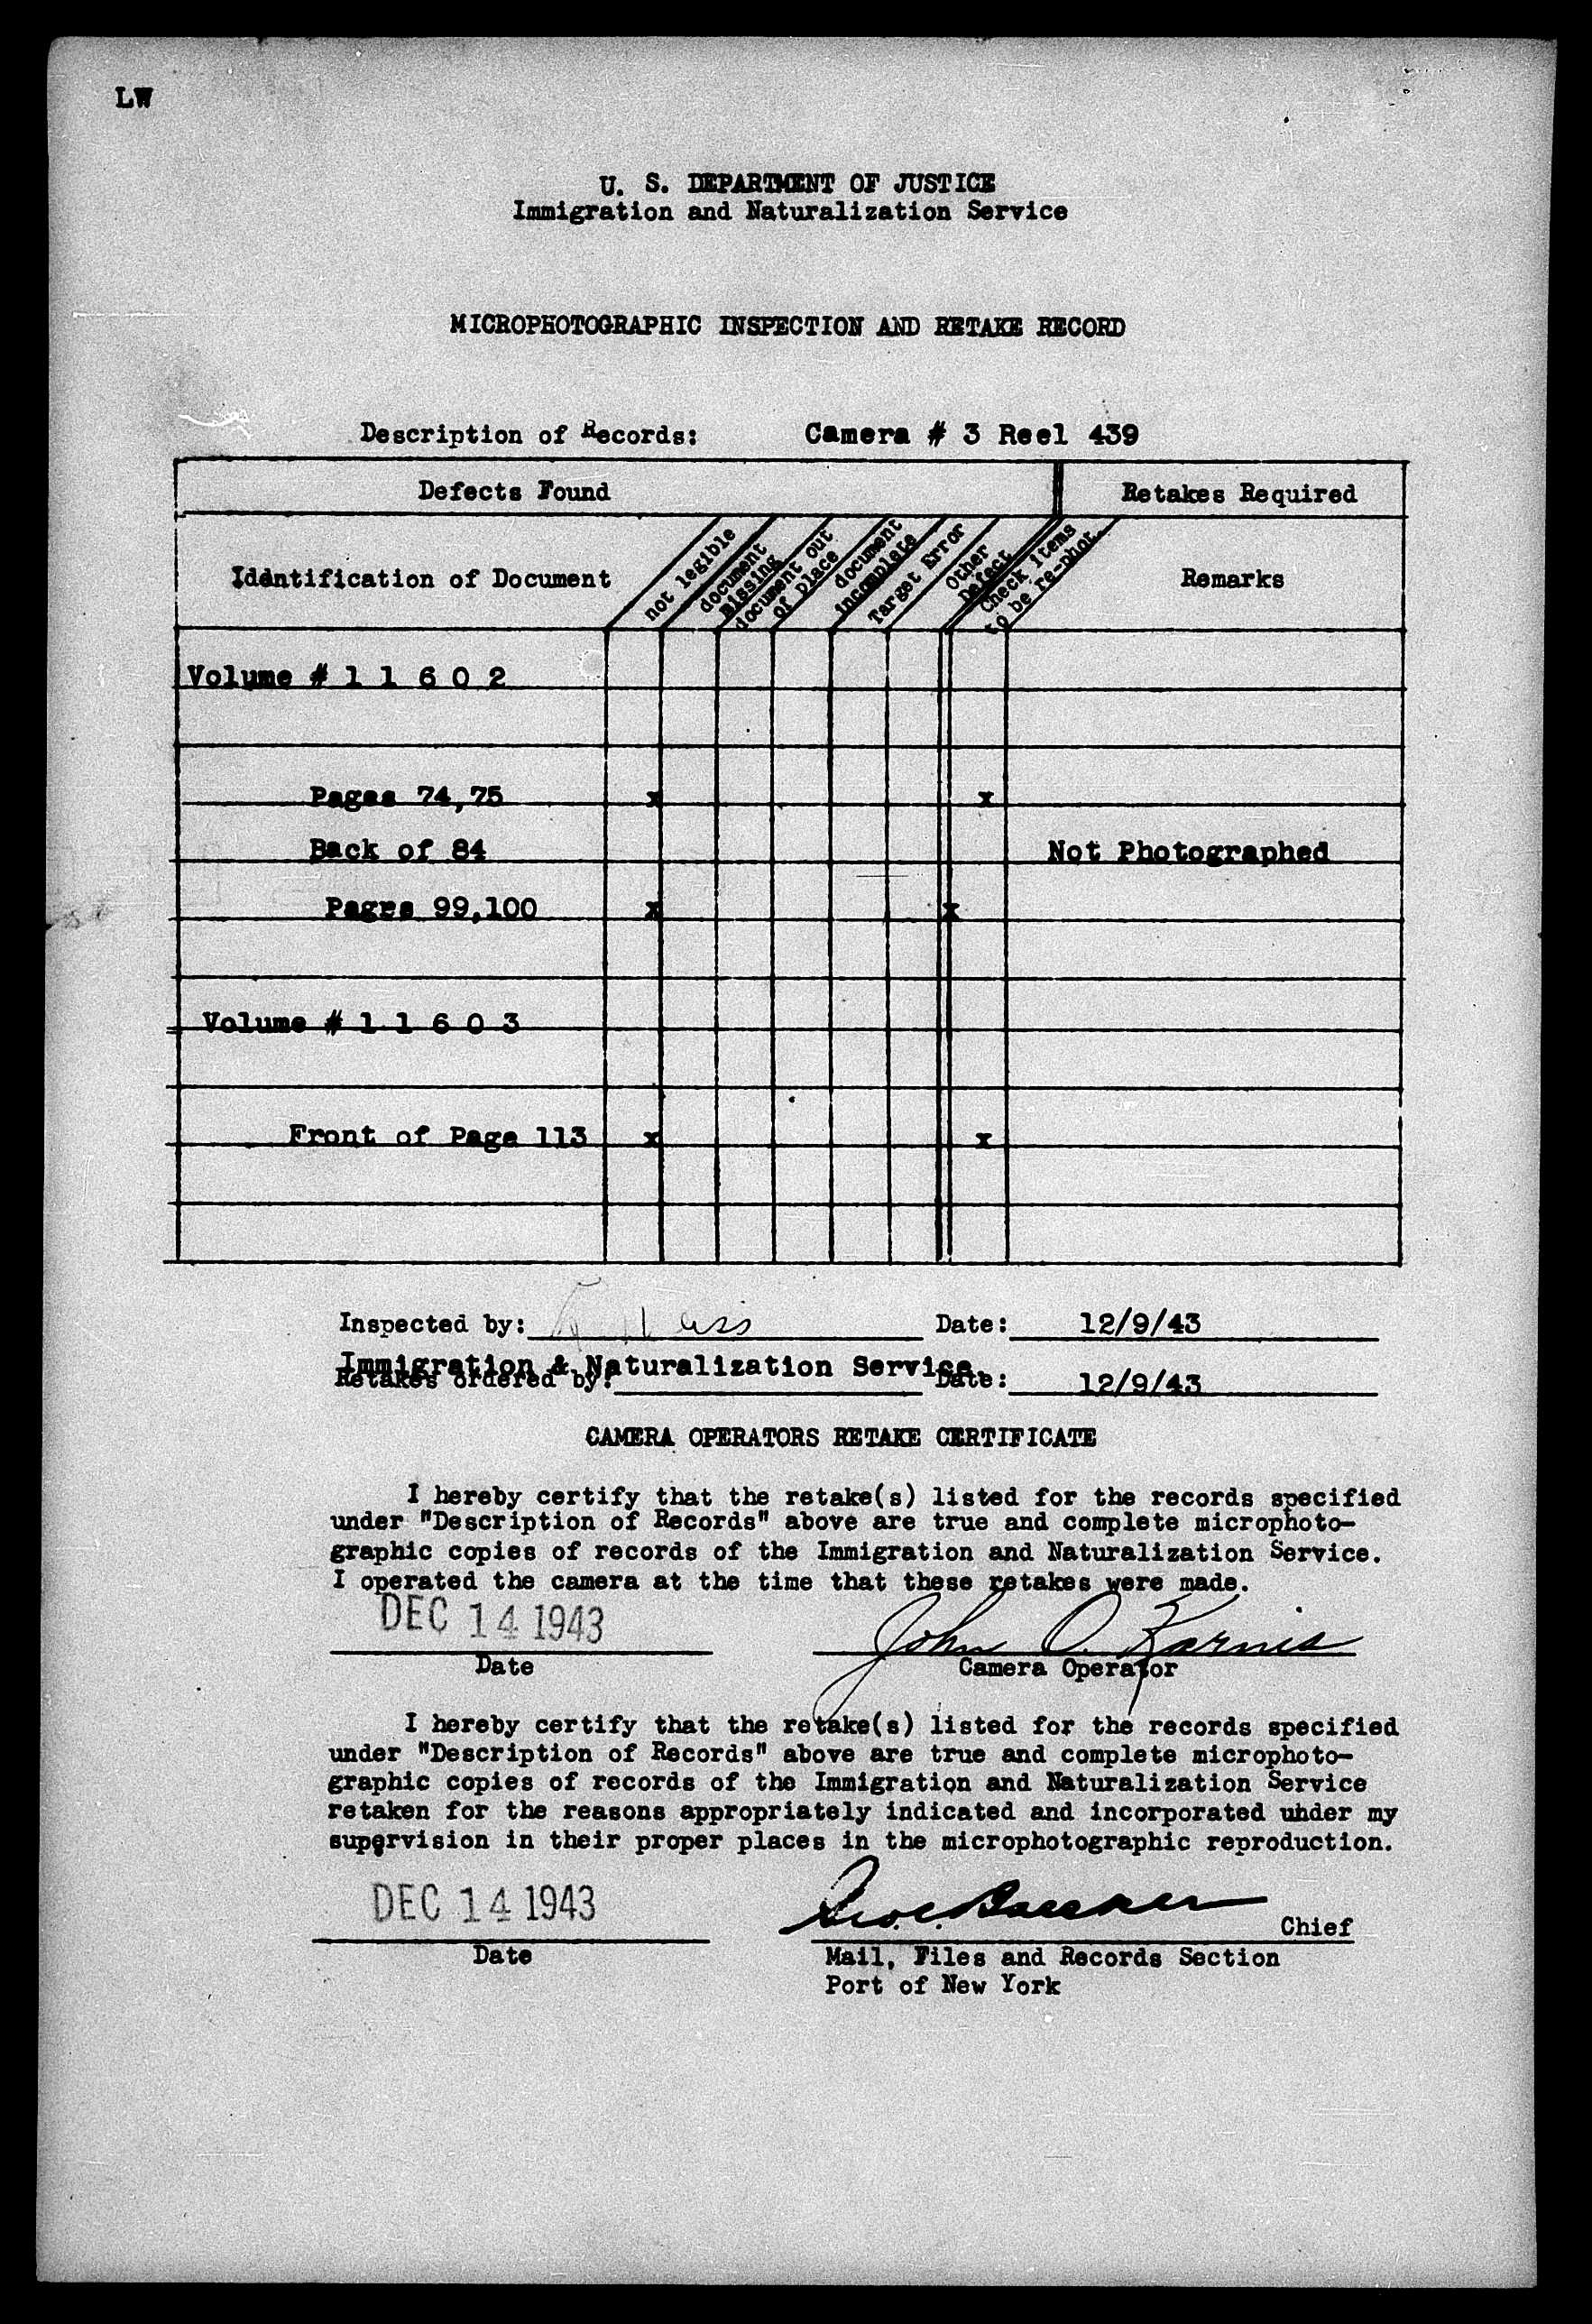 LW
U. S. DEPARTMENT OF JUSTICE
Immigration and Naturalization Service
MICROPHOTOGRAPHIC INSPECTION AND RETAKE RECORD
Description of Records: Camera # 3 Reel 439
Defects Found
Retakes Required
Identification of Document
not legible
document
missing
document out
of place
document
incomplete
Target Error
Other
Defect
Check items
to be re-phot.
Remarks
Volume # 1 1 6 0 2
Pages 74,75 x x
Back of 84 Not Photographed
Pages 99,100 x x
Volume # 1 1 6 0 3
Front of Page 113 x x
Inspected by: Date: 12/9/43
Immigration & Naturalization Service.
Retakes ordered by: Date: 12/9/43
CAMERA OPERATORS RETAKE CERTIFICATE
I hereby certify that the retake(s) listed for the records specified
under "Description of Records" above are true and complete microphoto-
graphic copies of records of the Immigration and Naturalization Service.
I operated the camera at the time that these retakes were made.
DEC 14 1943 John O. Karnis
Date Camera Operator
I hereby certify that the retake(s) listed for the records specified
under "Description of Records" above are true and complete microphoto-
graphic copies of records of the Immigration and Naturalization Service
retaken for the reasons appropriately indicated and incorporated under my
supervision in their proper places in the microphotographic reproduction.
DEC 14 1943 Chief
Date Mail, Files and Records Section
Port of New York